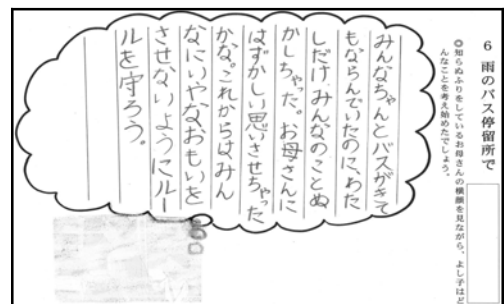 6 雨のバス停留所で
◎知らぬふりをしているお母さんの横顔を見ながら、よし子はど
んなことを考え始めたでしょう。
みんなちゃんとバスがきて
もならんでいたのに、わた
しだけみんなのことぬ
かしちゃった。お母さんに
はずかしい思いさせちゃった
かな。これからはみん
なにいやなおもいを
させないようにルー
ルを守ろう。